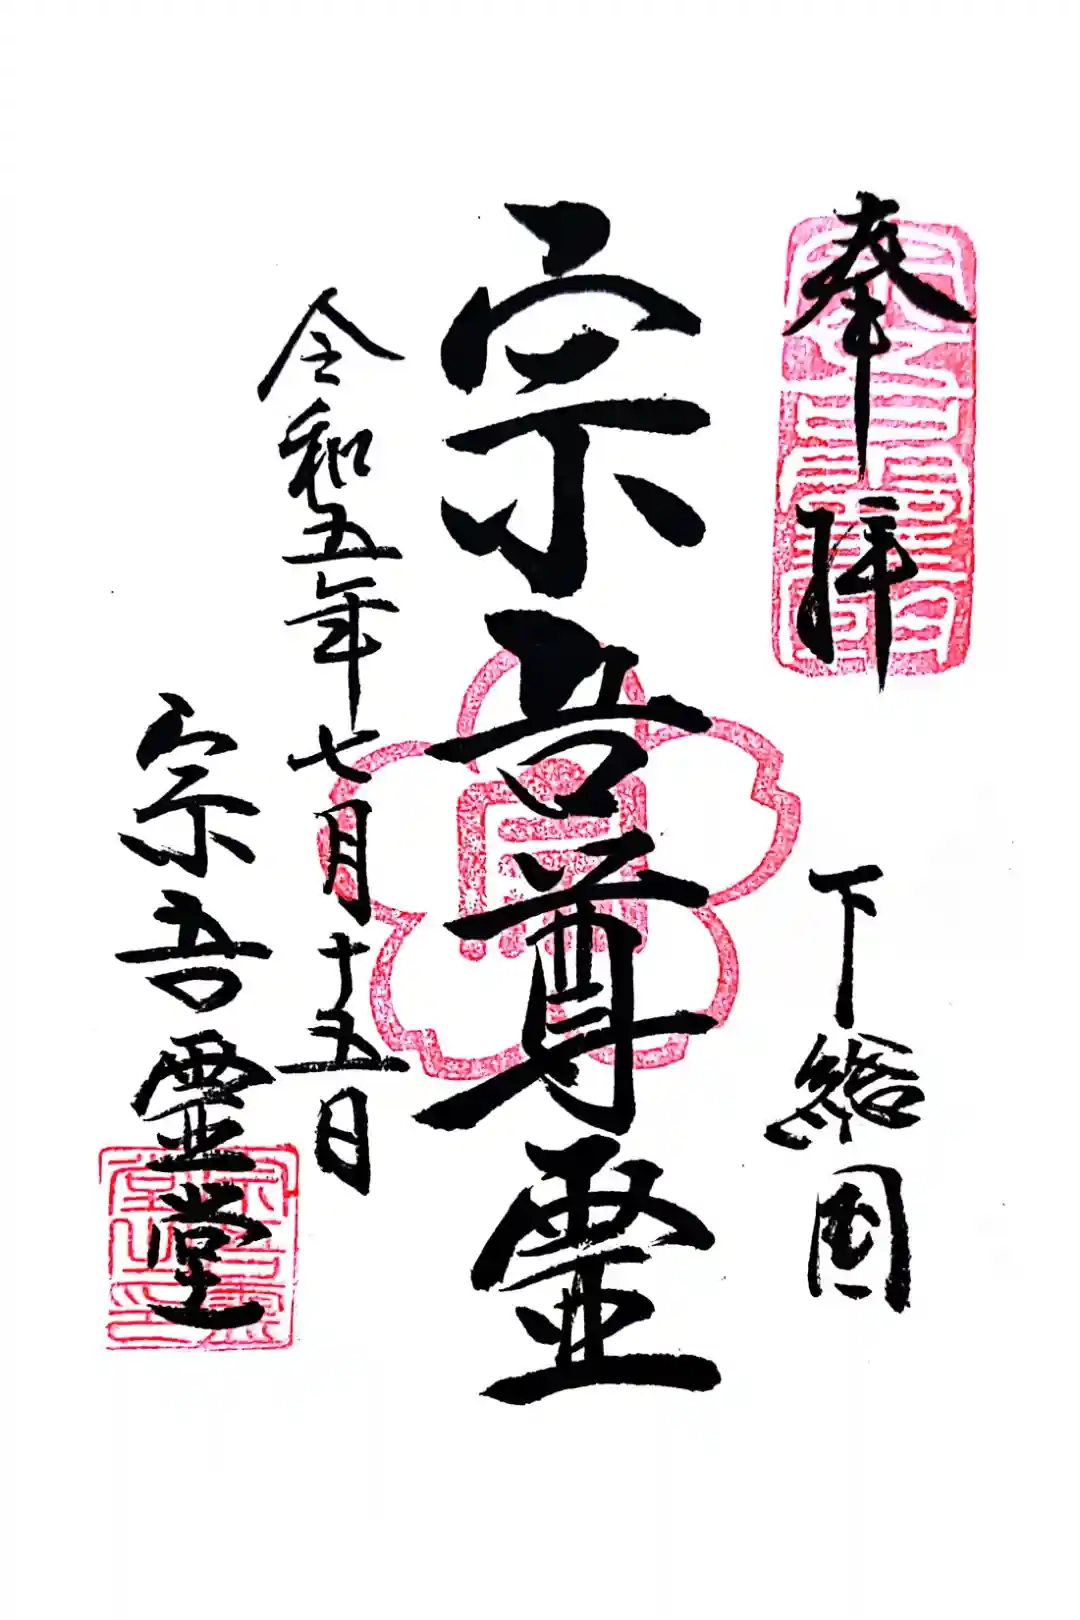 奉拝
下総国
宗吾尊霊
令和五年七月十五日
宗吾霊堂